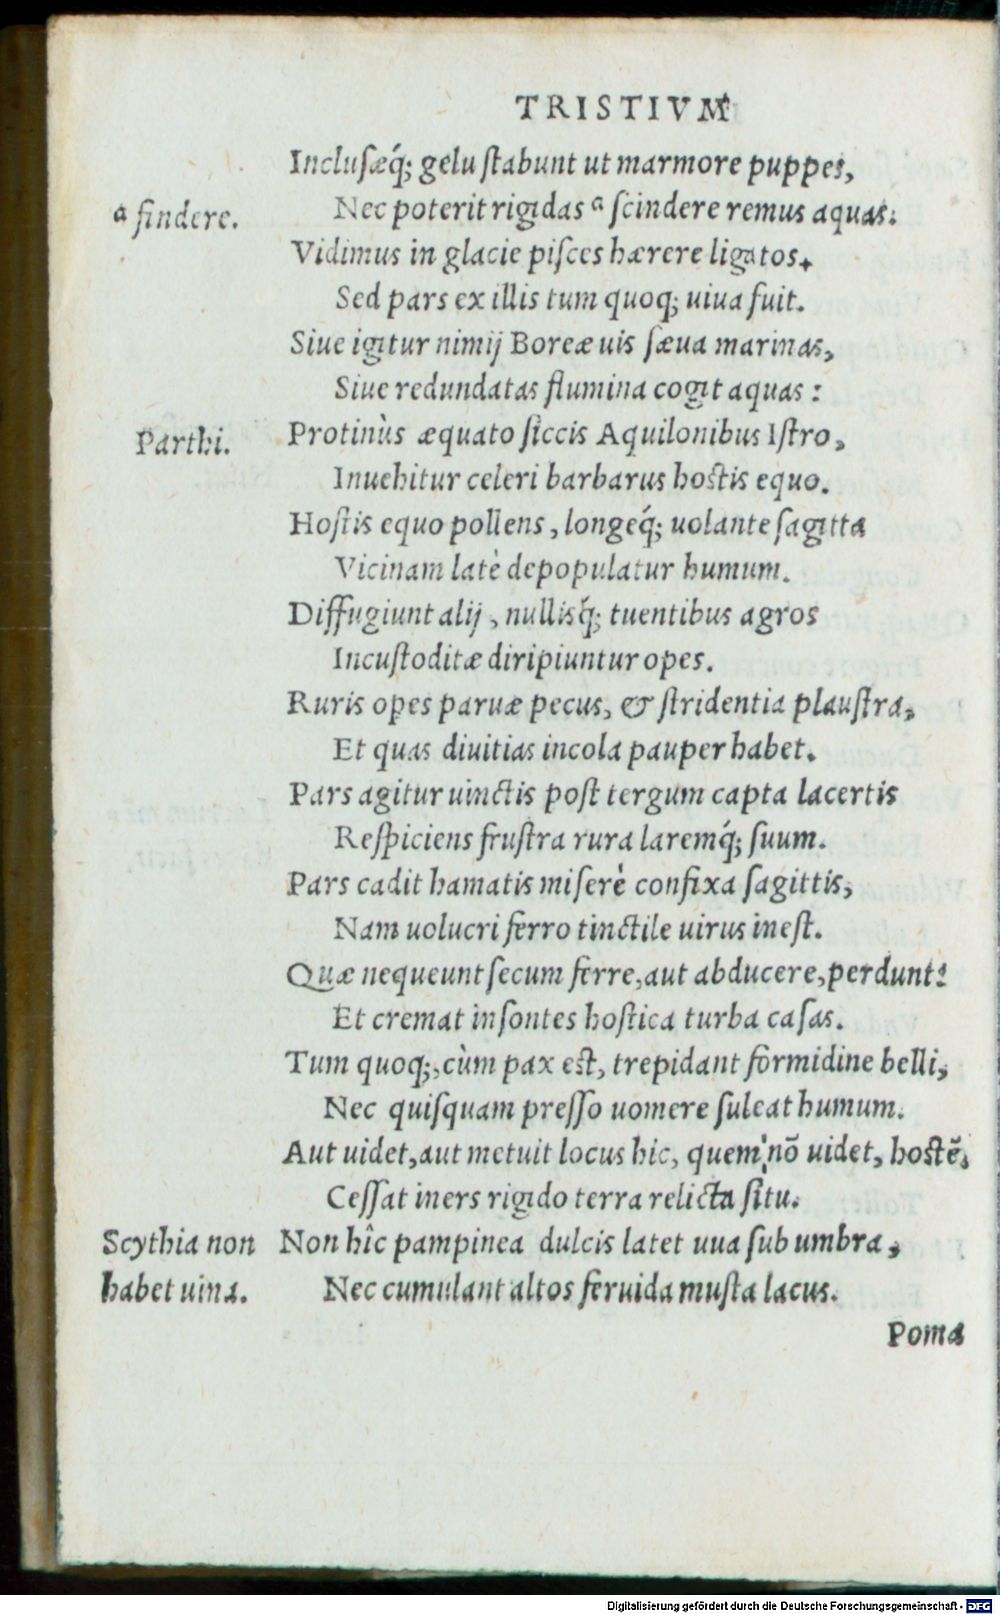 TRISTIVM
Inclusæq́; gelu stabunt ut marmore puppes,
ª findere.
Nec poterit rigidas ª scindere remus aquas.
Vidimus in glacie pisces hærere ligatos,
Sed pars ex illis tum quoq; uiua fuit.
Siue igitur nimij Boreæ uis sæua marinas,
Siue redundatas flumina cogit aquas:
Parthi.
Protinùs æquato siccis Aquilonibus Istro,
Inuehitur celeri barbarus hostis equo.
Hostis equo pollens, longeq́; uolante sagitta
Vicinam latè depopulatur humum.
Diffugiunt alij, nullisq́; tuentibus agros
Incustoditæ diripiuntur opes.
Ruris opes paruæ pecus, & stridentia plaustra,
Et quas diuitias incola pauper habet.
Pars agitur uinctis post tergum capta lacertis
Respiciens frustra rura laremq́; suum.
Pars cadit hamatis miserè confixa sagittis,
Nam uolucri ferro tinctile uirus inest.
Quæ nequeunt secum ferre, aut abducere, perdunt:
Et cremat insontes hostica turba casas.
Tum quoq;, cùm pax est, trepidant formidine belli,
Nec quisquam presso uomere sulcat humum.
Aut uidet, aut metuit locus hic, quem nõ uidet, hostẽ,
Cessat iners rigido terra relicta situ.
Scythia non
habet uina.
Non hîc pampinea dulcis latet uua sub umbra,
Nec cumulant altos feruida musta lacus.
Poma
Digitalisierung gefördert durch die Deutsche Forschungsgemeinschaft - DFG